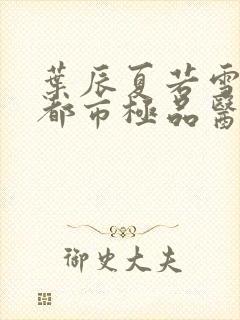 葉辰夏若雪
都市極品醫
御史大夫